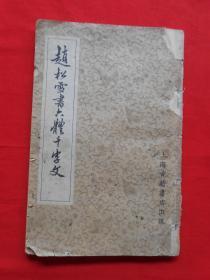 趙松雪書六體千字文
上海古籍書店出版